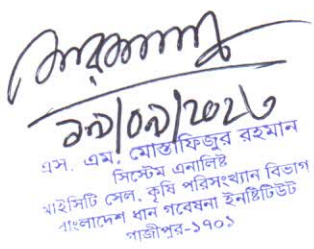 এস. এম. মোস্তাফিজুর রহমান
সিস্টেম এনালিষ্ট
আইসিটি সেল, কৃষি পরিসংখ্যান বিভাগ
বাংলাদেশ ধান গবেষণা ইনষ্টিটিউট
গাজীপুর-১৭০১